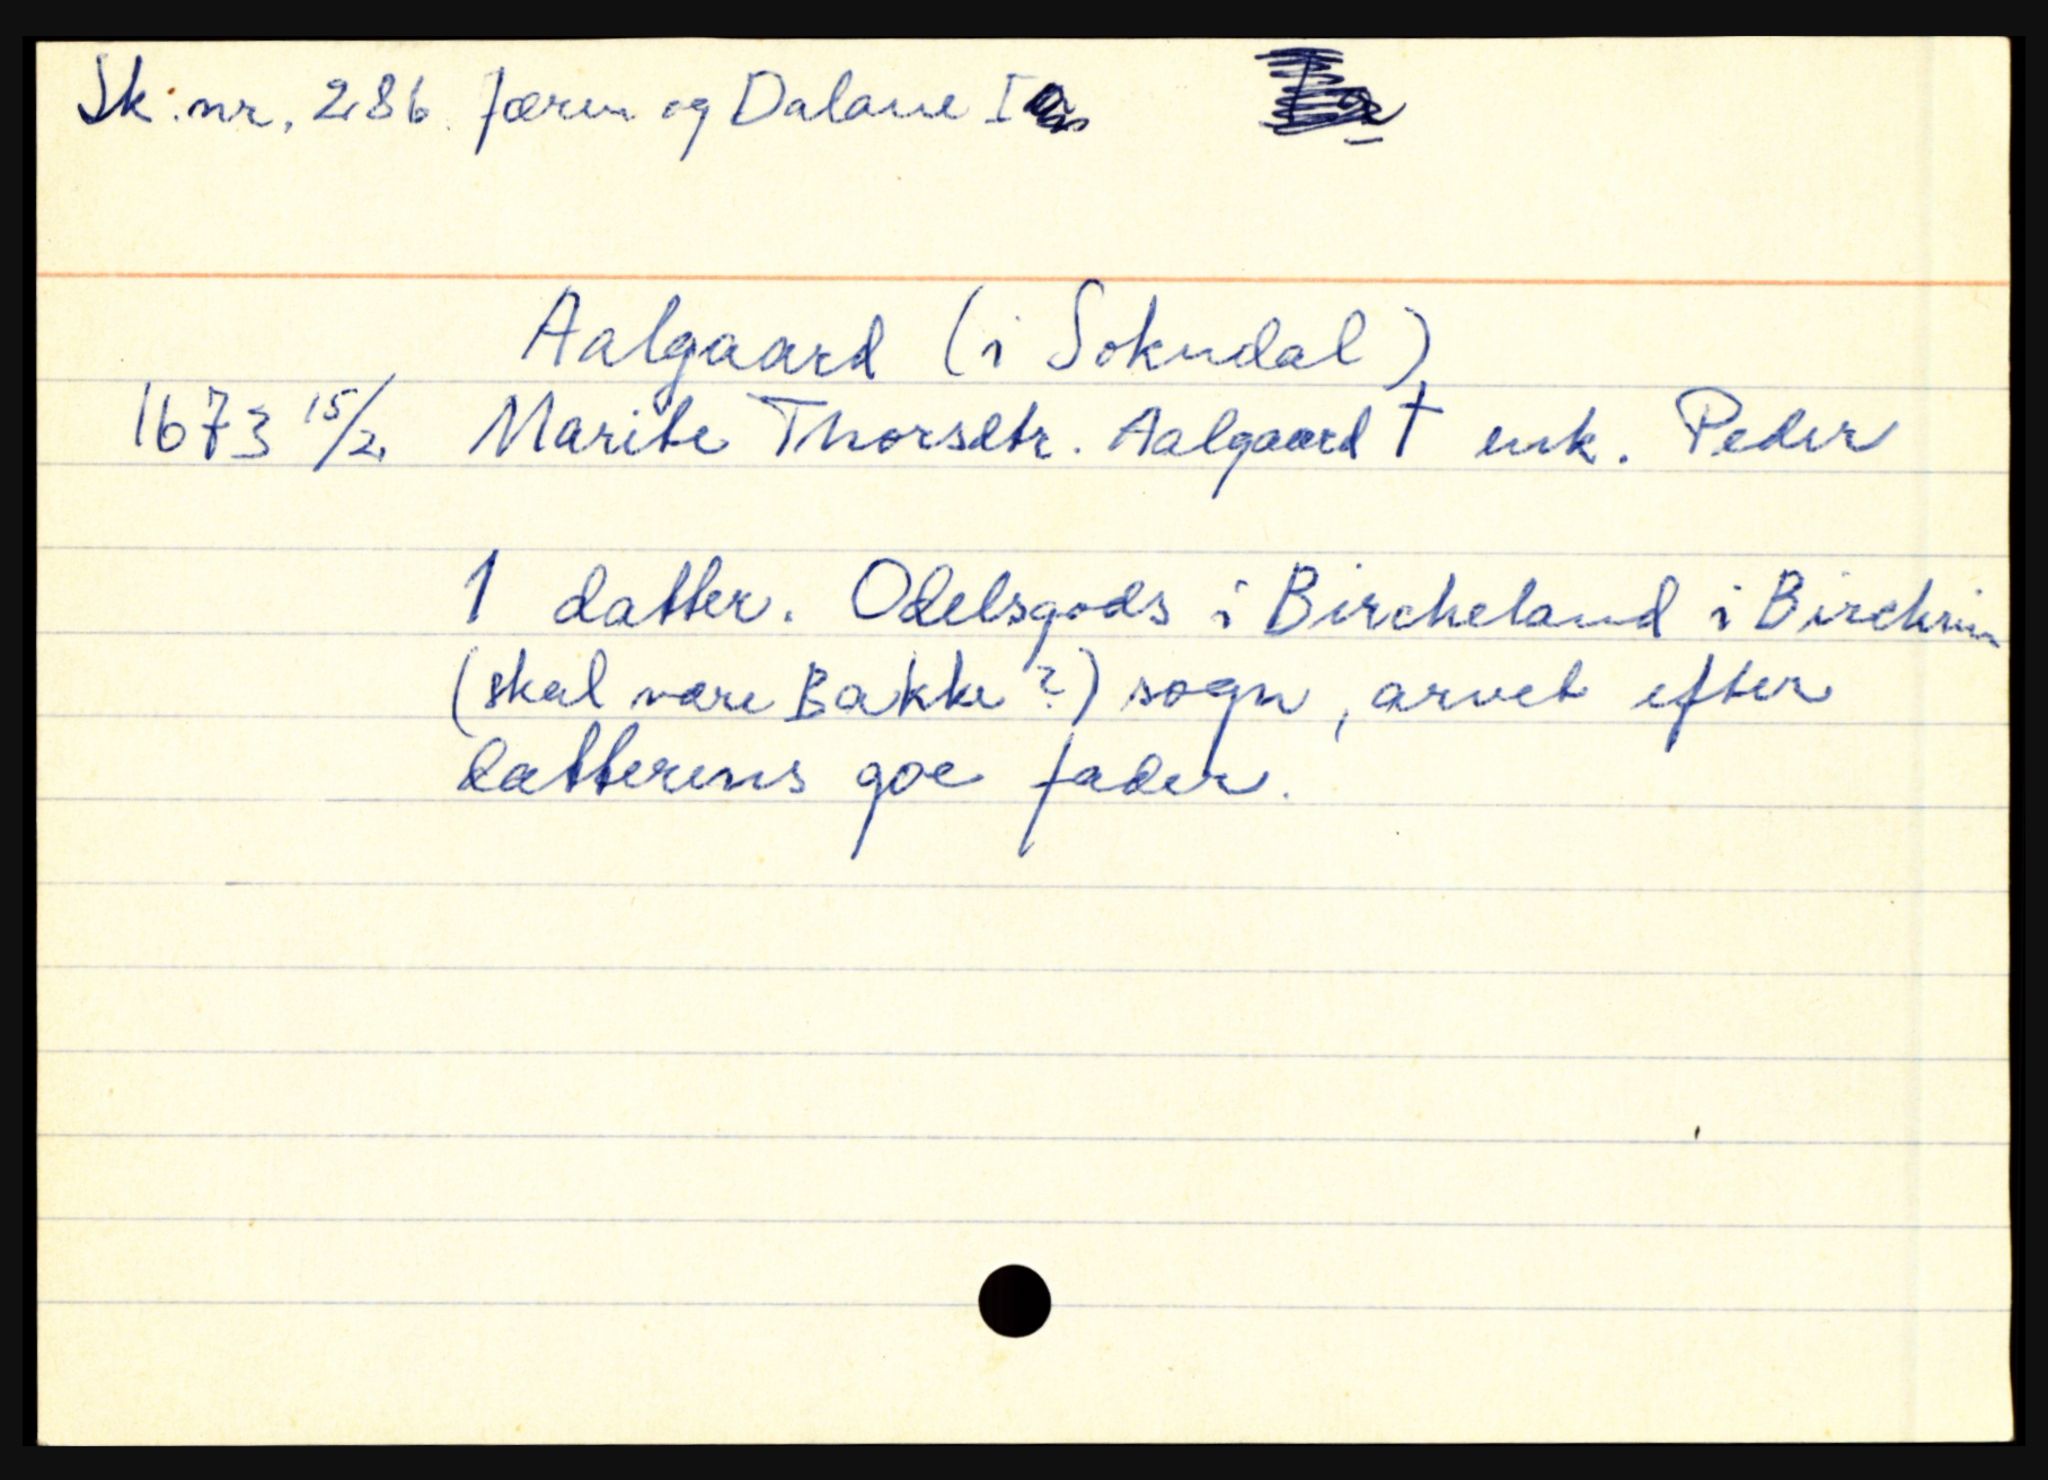 Sk. nr. 286. Jæren og Dalane I
Aalgaard (i Sokndal)
1673 15/2. Marite Thorsdtr. Aalgaard † enk. Peder
1 datter. Odelsgods i Bircheland i Birchrim
(skal være Bakke?) sogn, arvet efter
datterens goe fader.